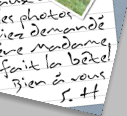 es photos
iez demandé
ère madame,
fait la bête!
Bien à vous
S. H